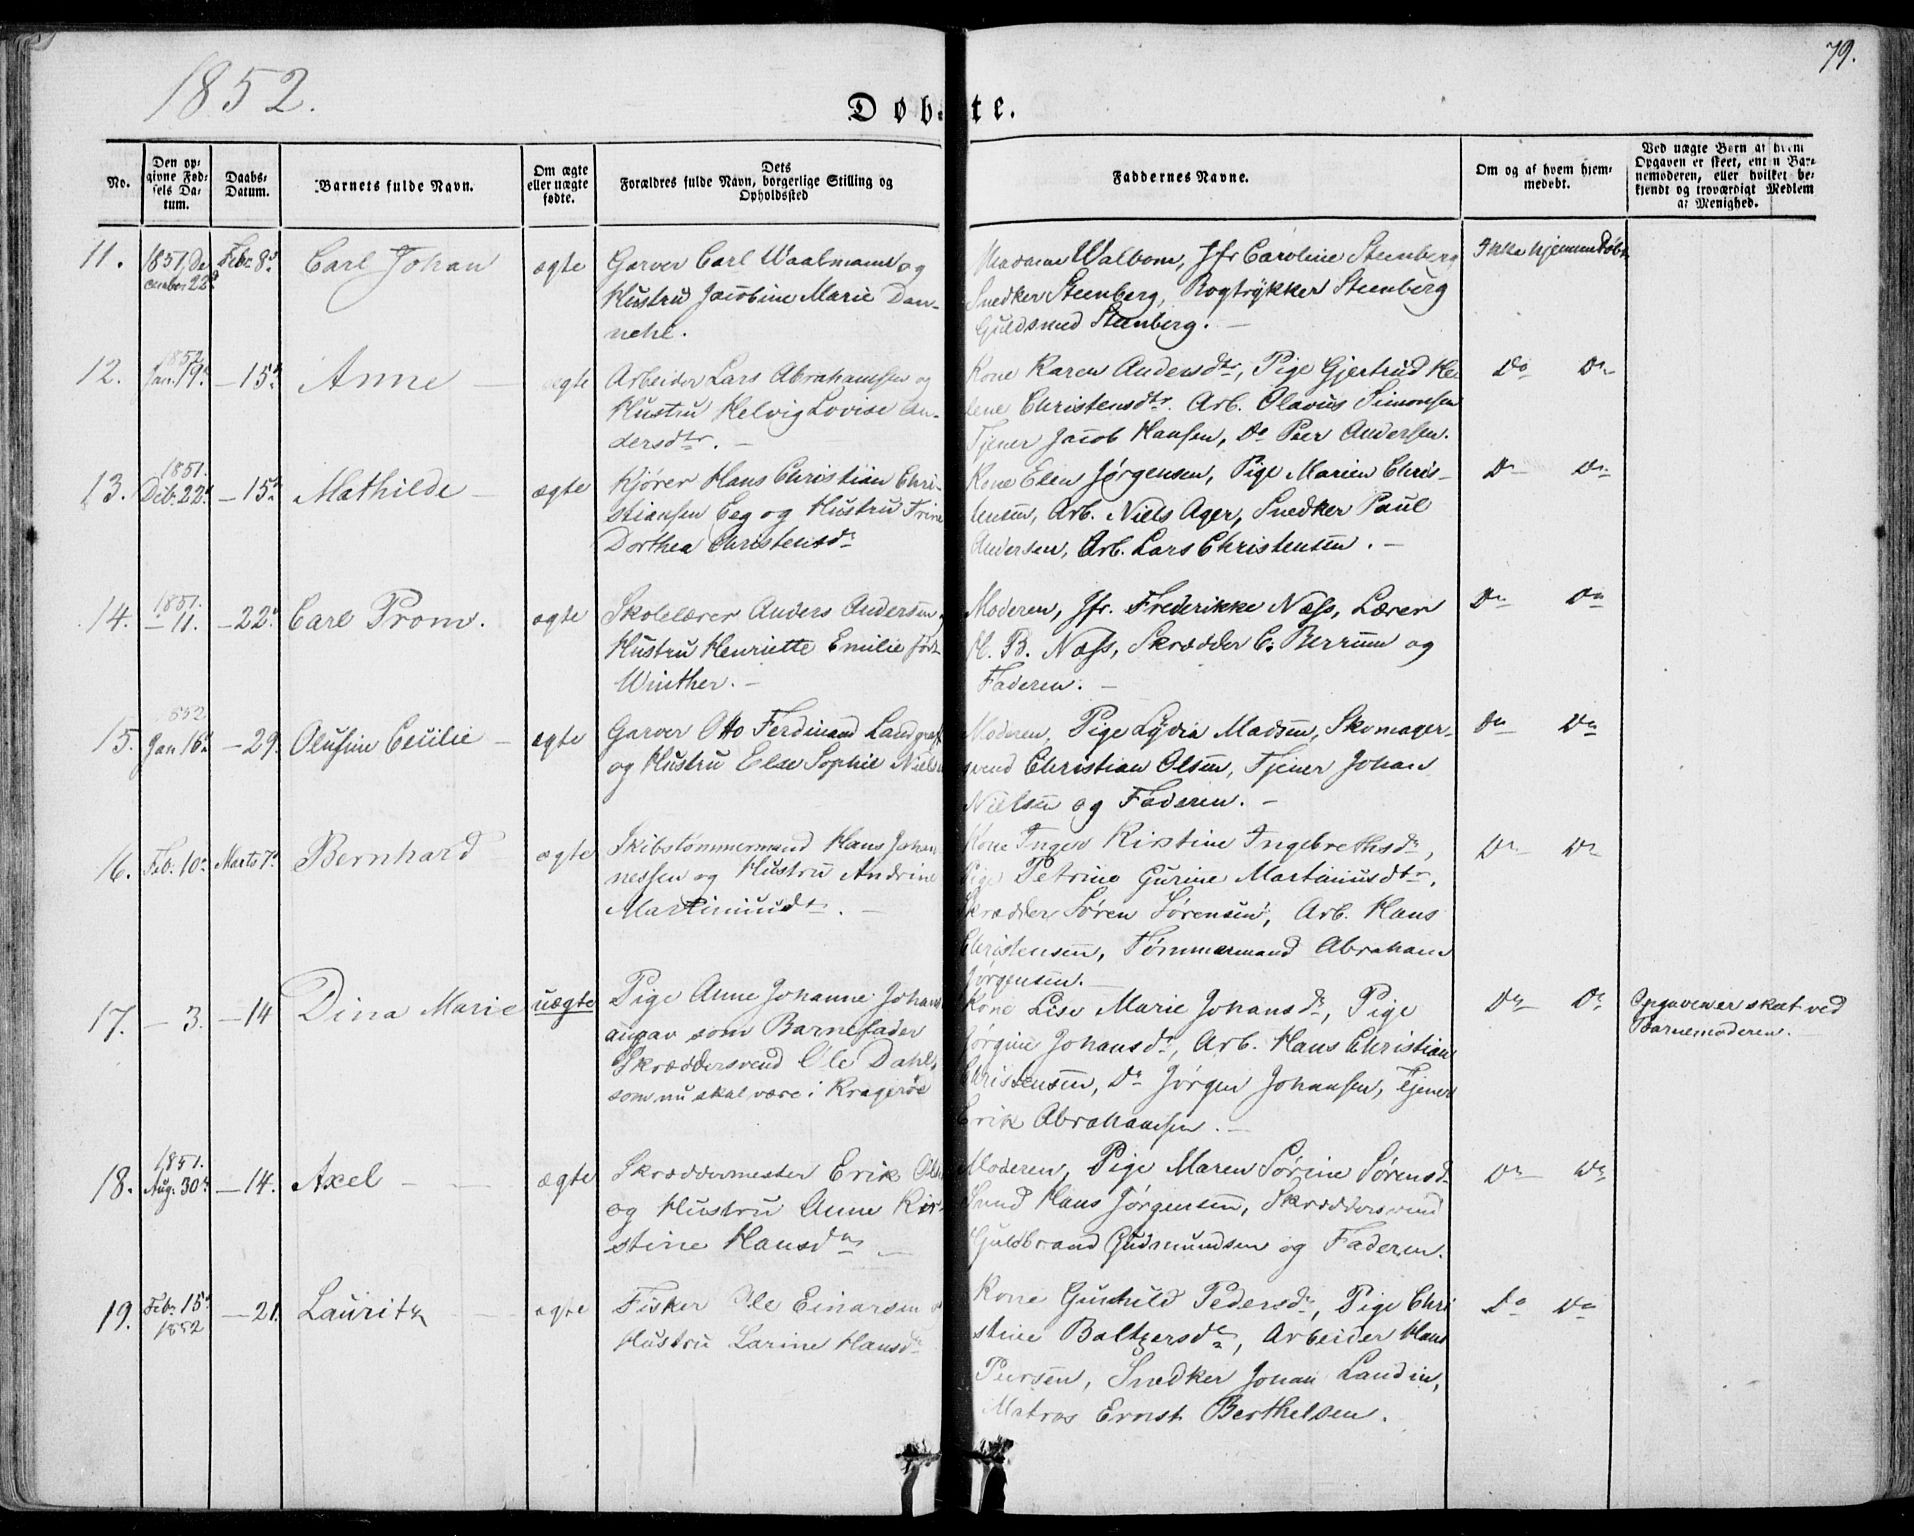 1852.
79.
Døb-
te.
No.
Den op-
givne Fød-
sels Da-
tum.
Daabs-
Datum.
Barnets fulde Navn.
Om ægte
eller uægte
fødte.
Dets
Forældres fulde Navn, borgerlige Stilling og
Opholdssted
Faddernes Navne.
Om og af hvem hjem-
medøbt.
Ved uægte Børn af hvem
Opgaven er skeet, enten Bar-
nemoderen, eller hvilket be-
kjendt og troværdigt Medlem
af Menighed.
11.
1851, De
cember 22d
Febr. 8d
Carl Johan
ægte
Garver Carl Waalmann og
Hustru Jacobine Marie Dan-
nehl.
Madame Walbom, Jfr Caroline Steenberg
Snedker Steenberg, Bogtrykker Steenberg
Guldsmed Steenberg. -
Ikke hjemmedøbt
12.
1852
Jan. 19d
- 15d
Anne -
ægte
Arbeider Lars Abrahamsen og
Hustru Helvig Lovise An-
dersdtr. -
Kone Karen Andersdtr, Pige Gjertrud He-
lene Christensdtr. Arb. Olavus Simonsen
Tjener Jacob Hansen, Do Peer Andersen.
Do Do
13.
1851.
Deb. 22d
- 15d
Mathilde -
ægte
Kjører Hans Christian Chri-
stiansen Eeg og Hustru Trine
Dorthea Christensdr
Kone Elen Jørgensen, Pige Maren Chris-
tensen, Arb. Niels Ager, Snedker Paul
Andersen, Arb. Lars Christensen. -
Do Do
14.
1851.
- 11.
- 22d
Carl Prom.
ægte
Skolelærer Anders Andersen og
Hustru Henriette Emilie født
Winther. -
Moderen, Jfr. Frederikke Næss, Lærer
H. B. Næss, Skrædder C. Berrum og
Faderen. -
Do Do
15.
1852
Jan. 16d
- 29.
Olufine Cecilie -
ægte
Garver Otto Ferdinand Landgraff
og Hustru Else Sophie Nielsen
Moderen, Pige Lydia Madsen, Skomager-
svend Christian Olsen, Tjener Johan
Nielsen og Faderen. -
Do Do
16.
Feb. 10d
Marts 7d
Bernhard
ægte
Skibstømmermand Hans Johan
nessen og Hustru Andrine
Martiniusdtr. -
Kone Inger Kirstine Ingebrethsdr,
Pige Petrine Gurine Martiniusdtr,
Skrædder Søren Sørensen, Arb. Hans
Christensen, Tømmermand Abraham
Jørgensen. -
Do Do
17.
- 3.
- 14
Dina Marie
uægte
Pige Anne Johanne Johans
angav som Barnefader
Skræddersvend Ole Dahl,
som nu skal være i Kragerøe
Kone Lise Marie Johansdr, Pige
Jørgine Johansdr, Arb. Hans Christian
Christensen, Do Jørgen Johansen, Tjener
Erik Abrahamsen. -
Do Do
Opgaven er skeet ved
Barnemoderen.
18.
1851.
Aug. 30d
- 14.
Axel - -
ægte
Skræddermester Erik Olsen
og Hustru Anne Kir-
stine Hansdr -
Moderen, Pige Maren Sørine Sørensd.
Svend Hans Jørgensen, Skræddersvend
Guldbrand Gudmundsen og Faderen.
Do Do
19.
Feb. 15d
1852
- 21.
Lauritz -
ægte
Fisker Ole Einarsen og
Hustru Larine Hansdr
Kone Gunhild Pedersdr, Pige Chri
stine Baltzersdr, Arbeider Hans
Peersen, Snedker Johan Landin,
Matros Ernst Berthelsen.
Do Do